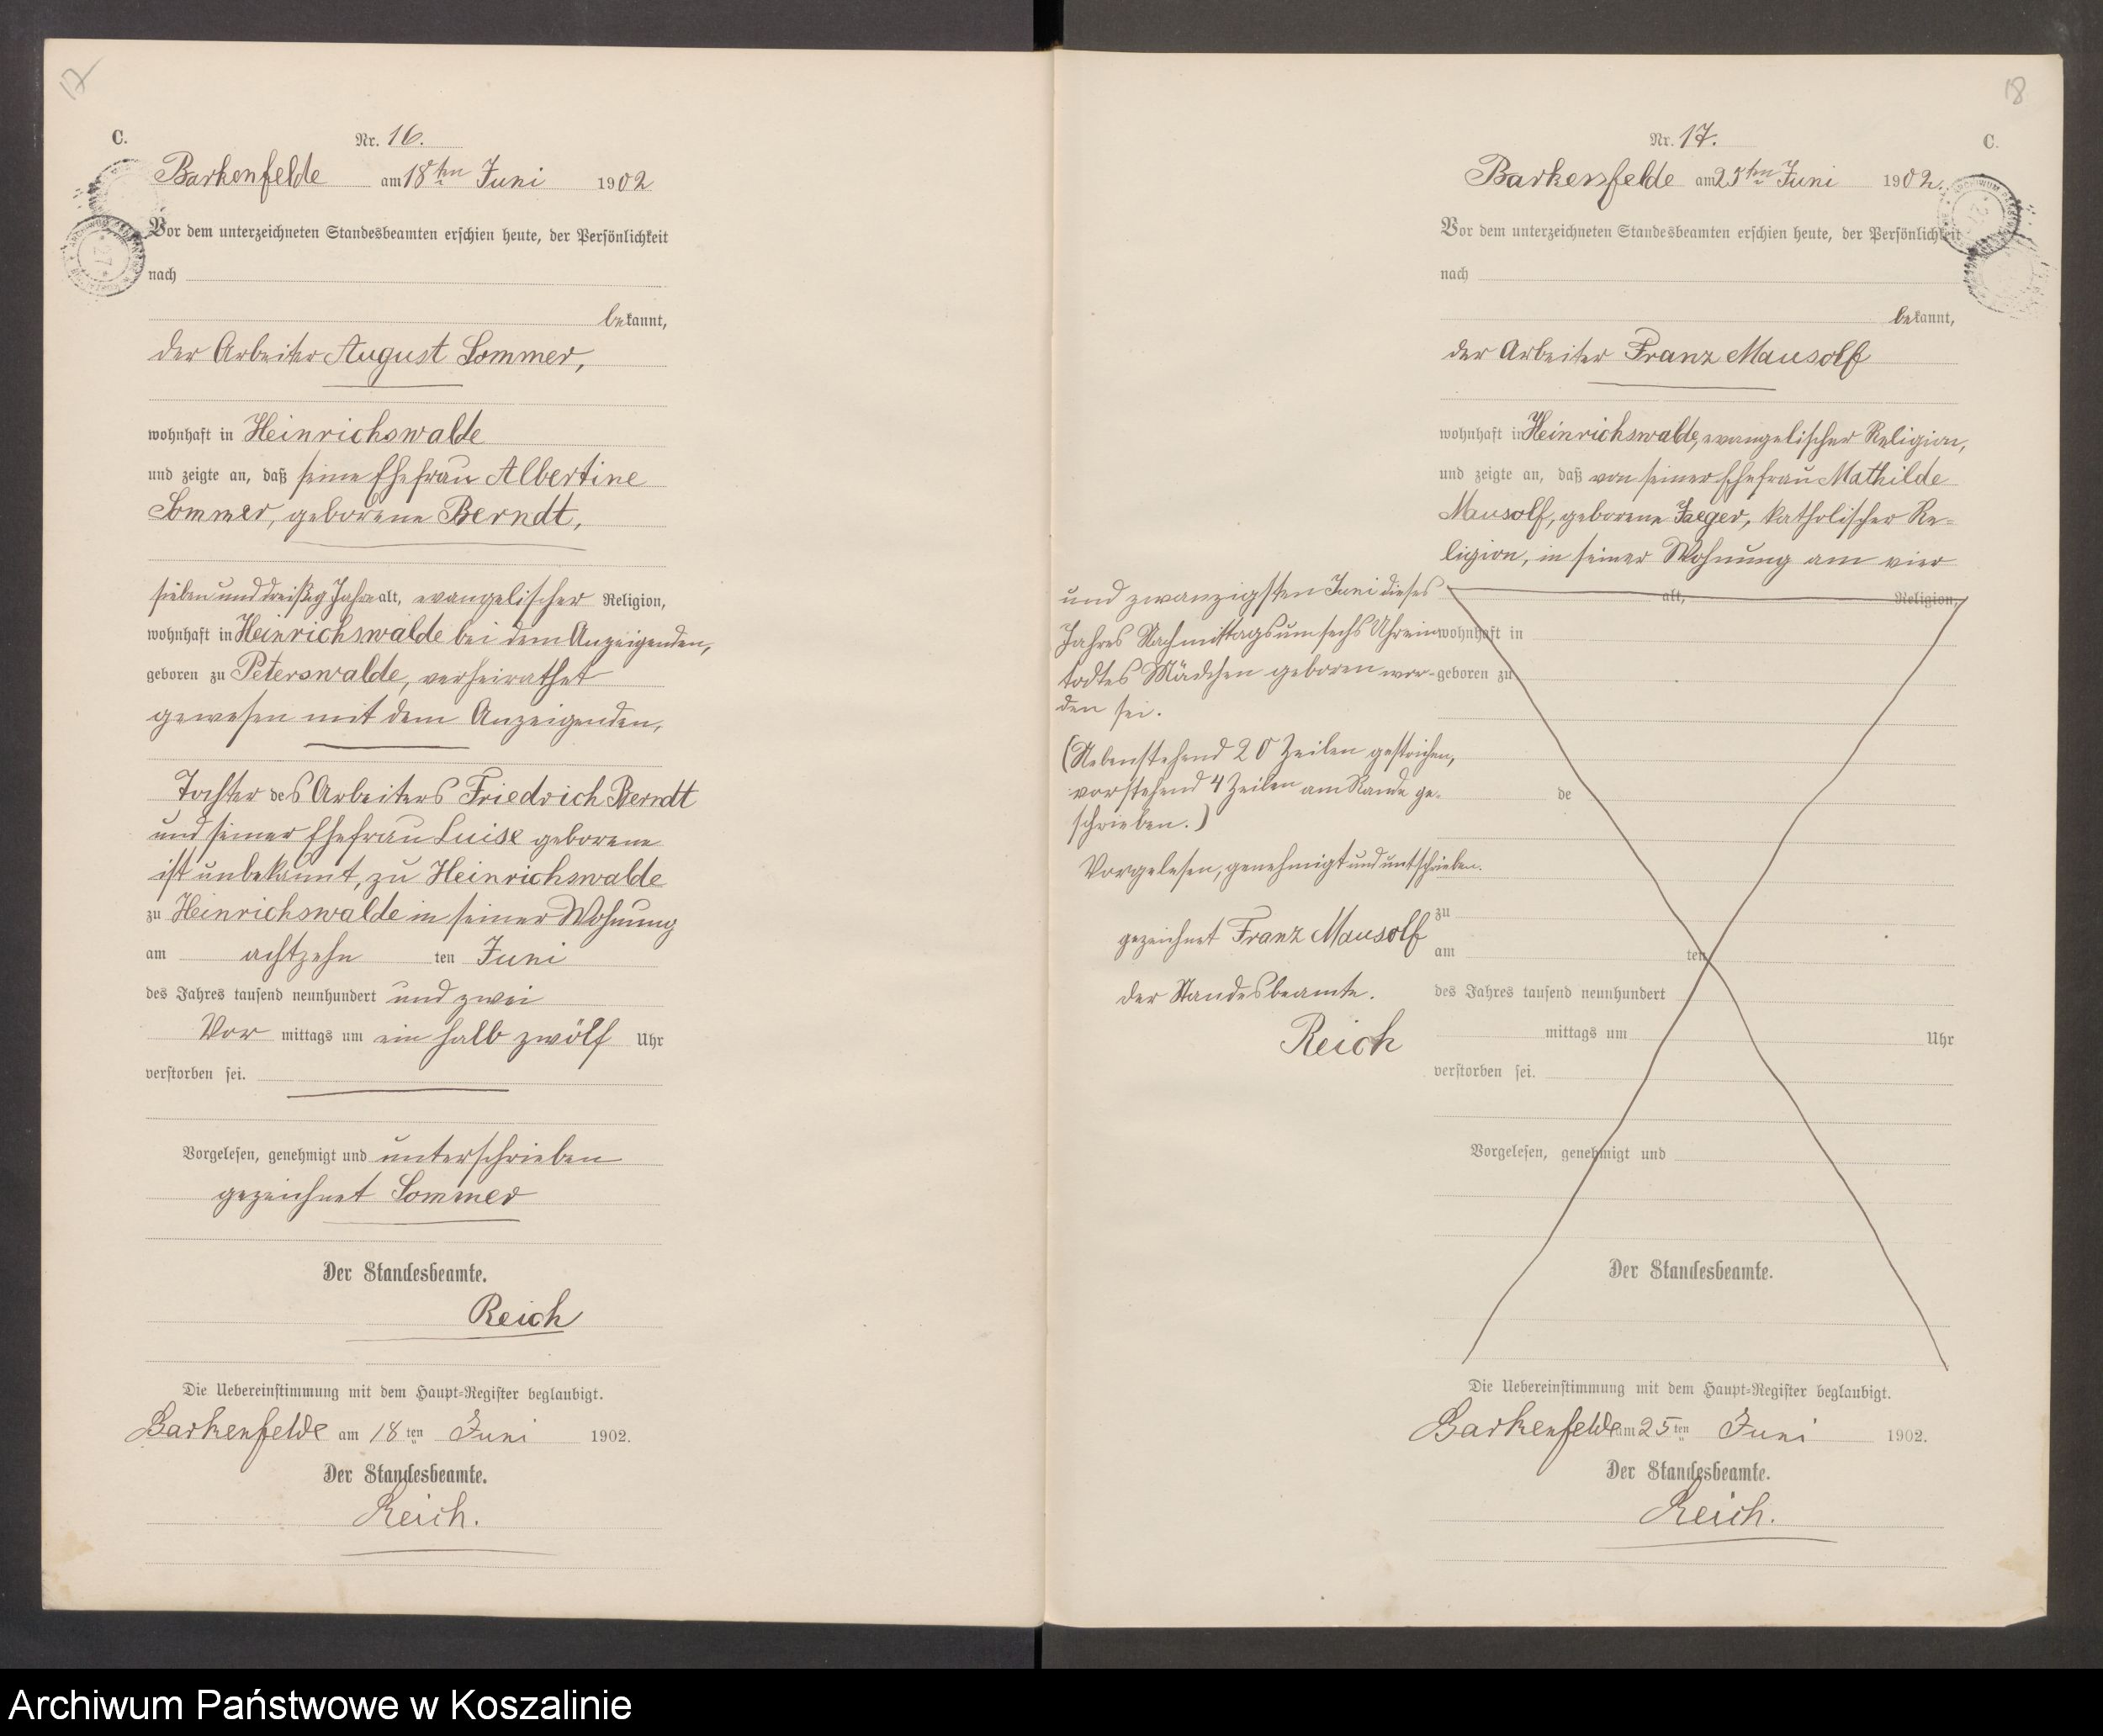 17
C.
Nr. 16.
Barkenfelde am 18ten Juni 1902
Vor dem unterzeichneten Standesbeamten erschien heute, der Persönlichkeit
nach
bekannt,
der Arbeiter August Sommer,
wohnhaft in Heinrichswalde
und zeigte an, daß seine Ehefrau Albertine
Sommer, geborene Berndt,
sieben und dreißig Jahre alt, evangelischer Religion,
wohnhaft in Heinrichswalde bei dem Anzeigenden,
geboren zu Peterswalde, verheirathet
gewesen mit dem Anzeigenden,
Tochter des Arbeiters Friedrich Berndt
und seiner Ehefrau Luise geborene
ist unbekannt, zu Heinrichswalde
zu Heinrichswalde in seiner Wohnung
am achtzehn ten Juni
des Jahres tausend neunhundert und zwei
Vor mittags um ein halb zwölf Uhr
verstorben sei.
Vorgelesen, genehmigt und unterschrieben
gezeichnet Sommer
Der Standesbeamte.
Reich
Die Uebereinstimmung mit dem Haupt-Register beglaubigt.
Barkenfelde am 18 ten Juni 1902.
Der Standesbeamte.
Reich.
18
Nr. 17.
C.
Barkenfelde am 25ten Juni 1902.
Vor dem unterzeichneten Standesbeamten erschien heute, der Persönlichkeit
nach
bekannt,
der Arbeiter Franz Mausolf
wohnhaft in Heinrichswalde, evangelischer Religion,
und zeigte an, daß von seiner Ehefrau Mathilde
Mausolf, geborene Jaeger, katholischer Re=
ligion, in seiner Wohnung am vier
und zwanzigsten Juni dieses
Jahres Nachmittags um sechs Uhr ein
todtes Mädchen geboren wor-
den sei.
(Nebenstehend 20 Zeilen gestrichen,
vorstehend 4 Zeilen am Rande ge-
schrieben.)
Vorgelesen, genehmigt und untschrieben.
gezeichnet Franz Mausolf
der Standesbeamte.
Reich
alt, Religion,
wohnhaft in
geboren zu
de
zu
am ten
des Jahres tausend neunhundert
mittags um Uhr
verstorben sei.
Vorgelesen, genehmigt und
Der Standesbeamte.
Die Uebereinstimmung mit dem Haupt-Register beglaubigt.
Barkenfelde am 25 ten Juni 1902.
Der Standesbeamte.
Reich.
Archiwum Państwowe w Koszalinie